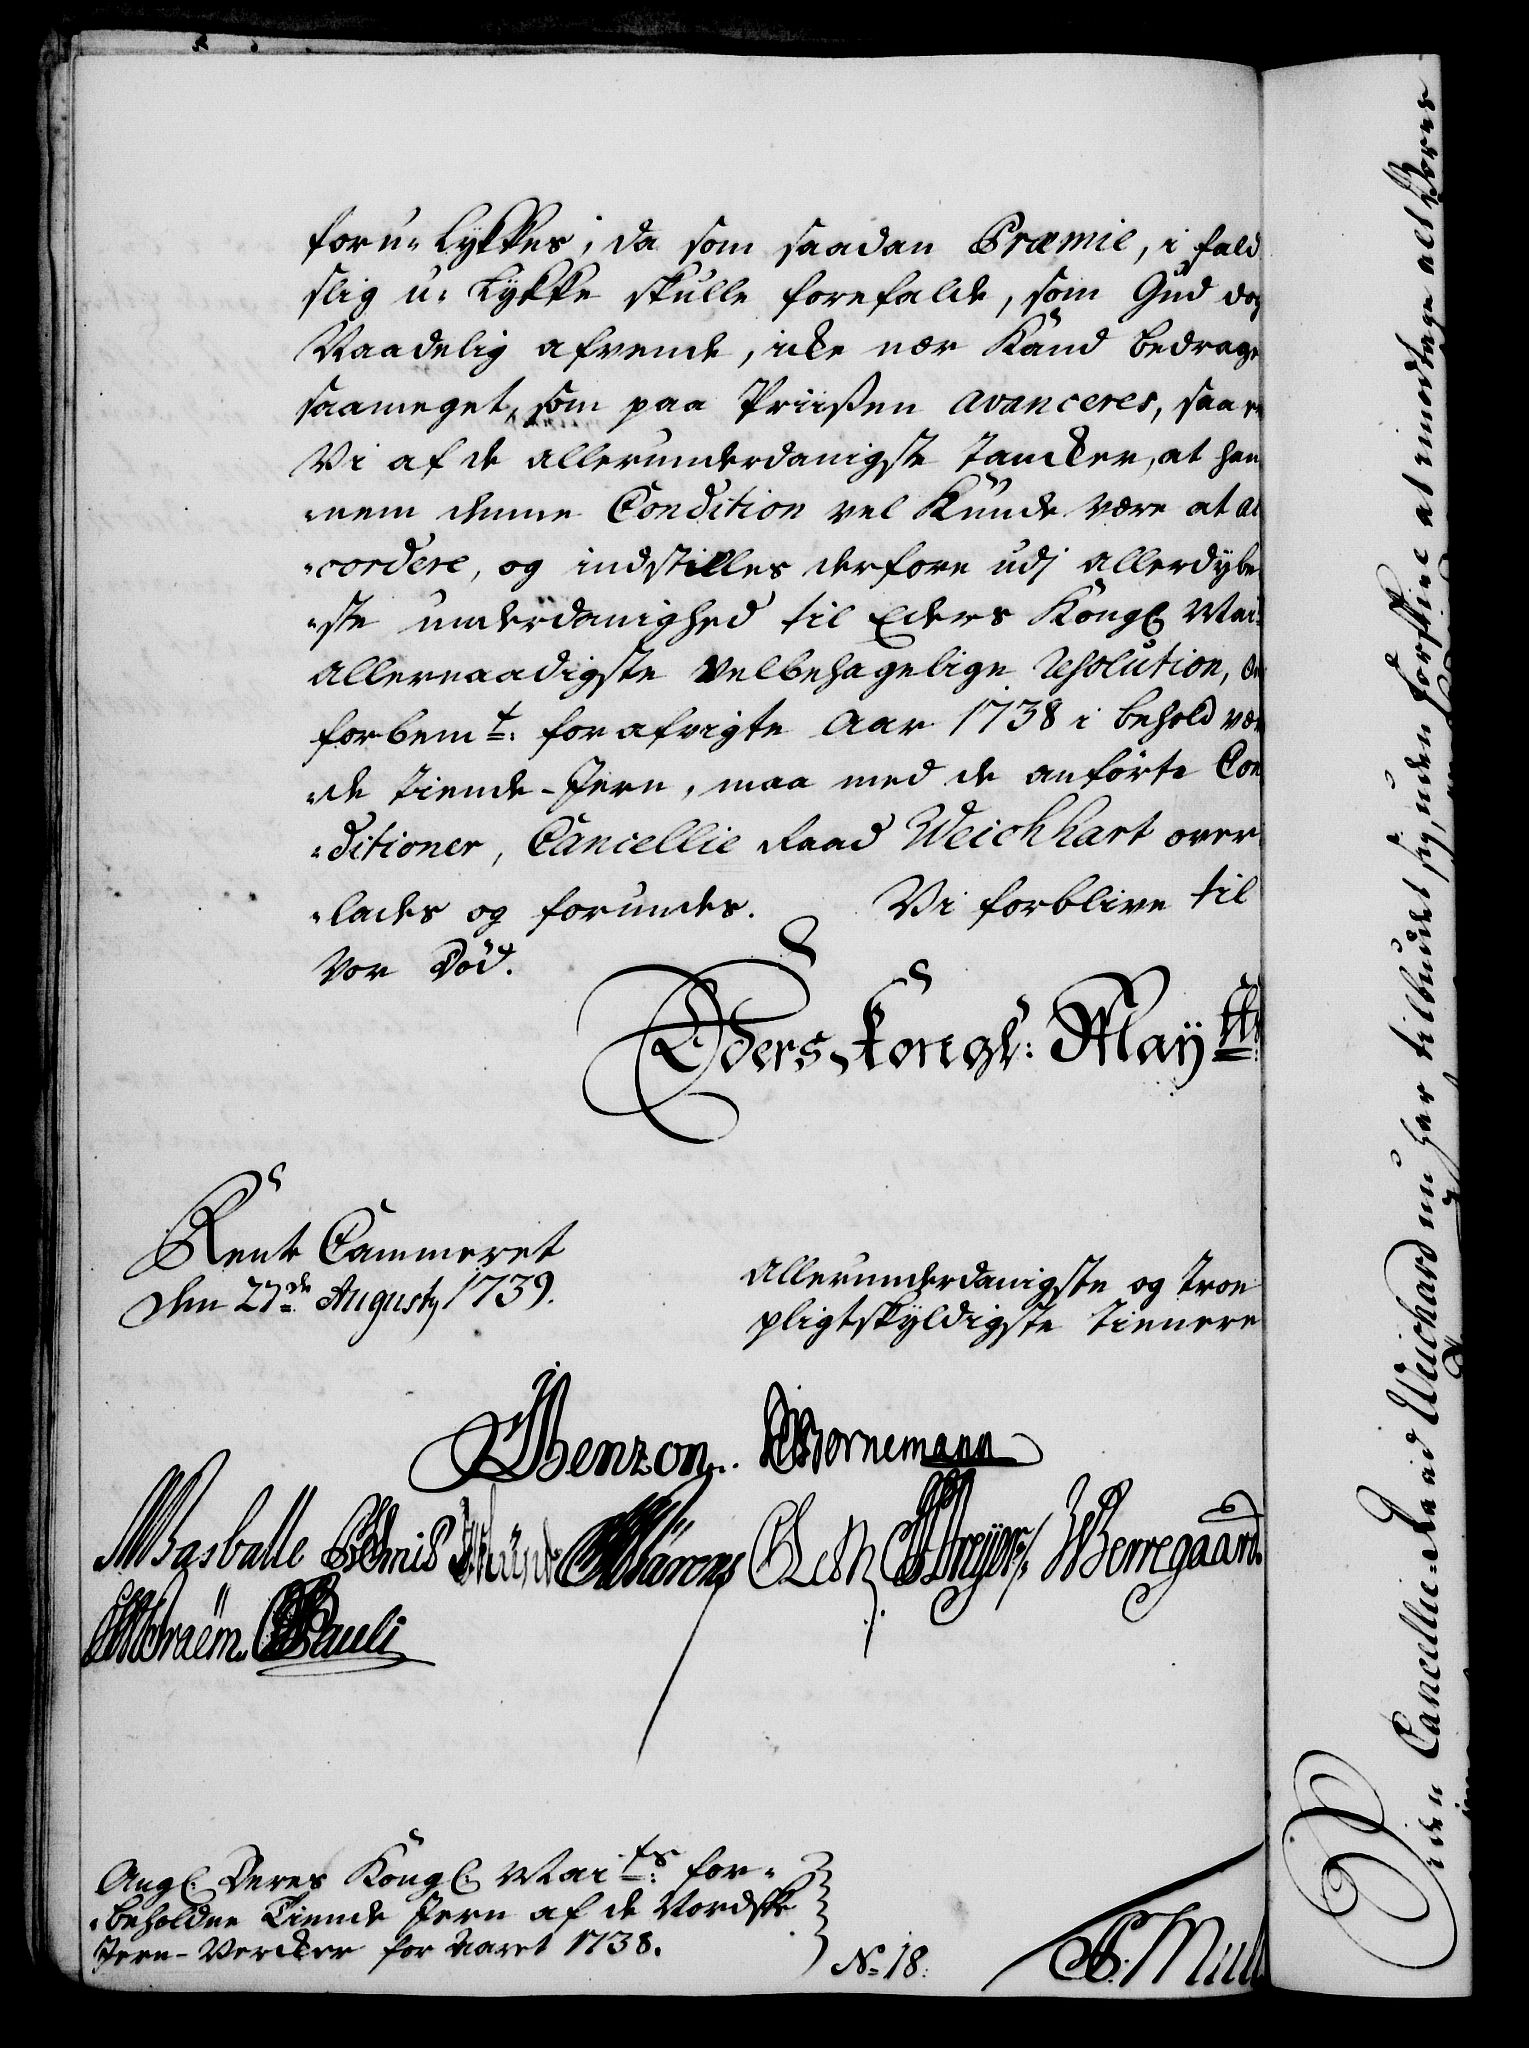 foru: lykkes, da som saadan Præmie, i fald
slig u: lykke skulle forefalde, som Gud dog
Naadelig afvende, icke nær Kand bedrage
saameget, som paa Priisen avanceres, saa er
Vi af de allerunderdanigste Tancker, at han
"nem denne Condition vel Kunde være at ac
"cordere, og indstilles derfore udj allerdybe
"ste underdanighed til Eders Kongl Mai:
Allernaadigste velbehagelige Resolution, om
forbemt: for afvigte Aar 1738 i behold væren
"de Tiende-Jern, maa med de anførte Con
"ditioner, Cancellie Raad Weichhart over
"lades og forundes. Vi forblive til
Vor Død.
Eders Kongl: Mayts:
Rente Cammeret
den 27de Augusty 1739.
Allerunderdanigste og troe
pligtskyldigste tienere
Benzon. Bornemann
Basballe Ehlers
Berregaard.
Braëm. Pauli
Angl. Deres Kongl. Maits: for-
"beholdne Tiende Jern af de Nordske
Jern-Vercker for Aaret 1738.
No 18.
Mull
Siden Cancellie-Raad Weichard nu har tilbudet sig, uden forskiel at imodtage alt Vores